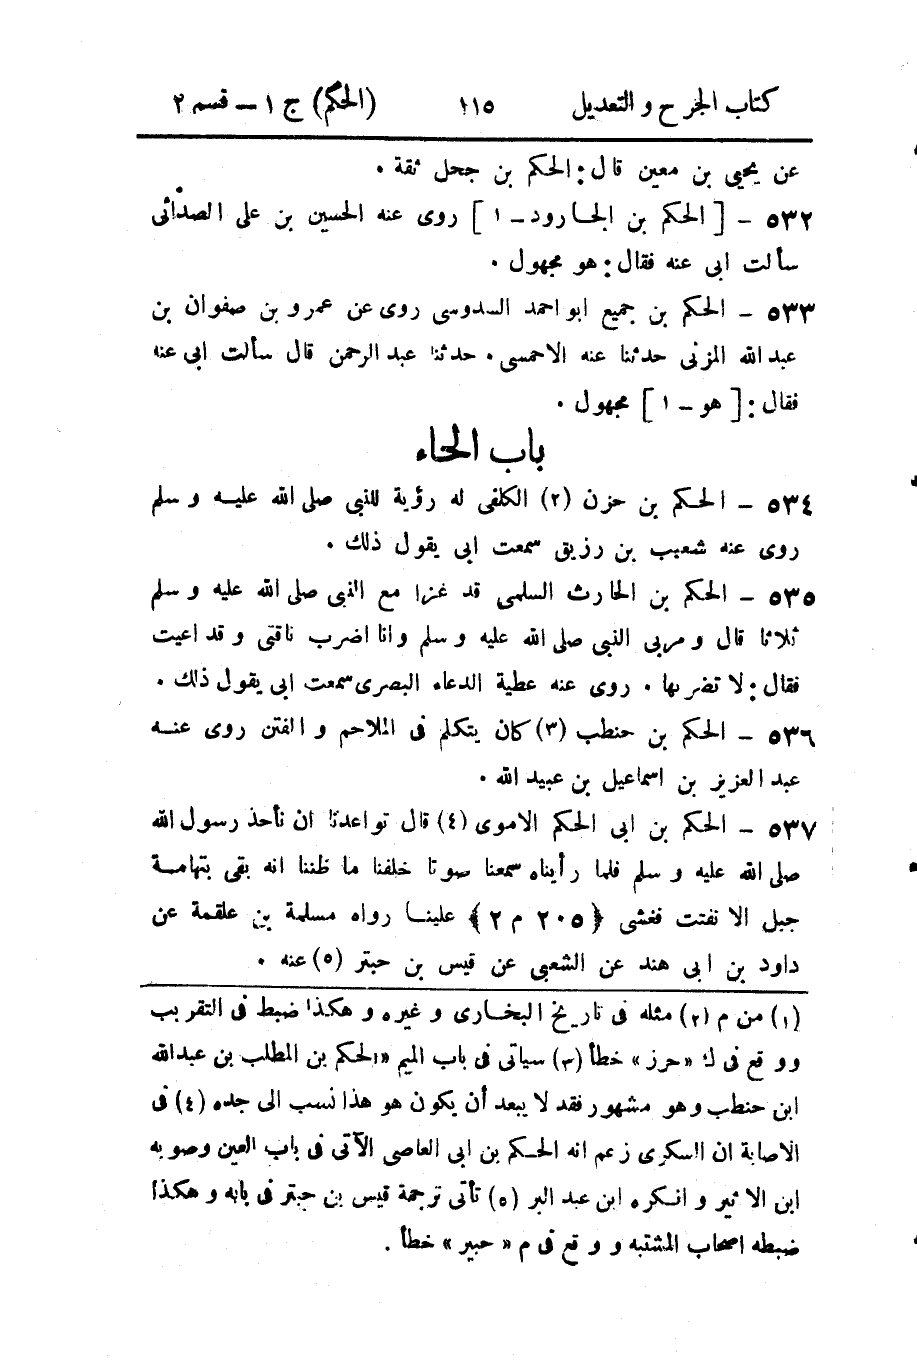 كتاب الجرح و التعديل ١١٥ (الحكم) ج ١ – قسم ٢
عن يحيى بن معين قال: الحكم بن جحل ثقة .
٥٣٢ – [ الحكم بن الجارود – ١ ] روى عنه الحسين بن على الصدائى
سألت ابى عنه فقال: هو مجهول .
٥٣٣ – الحكم بن جميع ابو احمد السدوسى روى عن عمرو بن صفوان بن
عبد الله المزنى حدثنا عنه الاحمسى . حدثنا عبد الرحمن قال سألت ابى عنه
فقال: [ هو – ١ ] مجهول .
باب الحاء
٥٣٤ – الحكم بن حزن (٢) الكلفى له رؤية للنبى صلى الله عليه و سلم
روى عنه شعيب بن رزيق سمعت ابى يقول ذلك .
٥٣٥ – الحكم بن الحارث السلمى قد غزا مع النبى صلى الله عليه و سلم
ثلاثا قال و مر بى النبى صلى الله عليه و سلم وانا اضرب ناقتى و قد اعيت
فقال: لا تضربها . روى عنه عطية الدعاء البصرى سمعت ابى يقول ذلك .
٥٣٦ – الحكم بن حنطب (٣) كان يتكلم فى الملاحم و الفتن روى عنه
عبد العزيز بن اسماعيل بن عبيد الله .
٥٣٧ – الحكم بن ابى الحكم الاموى (٤) قال تواعدنا ان نأخذ رسول الله
صلى الله عليه و سلم فلما رأيناه سمعنا صوتا خلفنا ما ظننا انه بقى بتهامة
جبل الا تفتت فغشى ﴿ ٢٠٥ م ٢ ﴾ علينا رواه مسلمة بن علقمة عن
داود بن ابى هند عن الشعبى عن قيس بن حبتر (٥) عنه .
(١) من م (٢) مثله فى تاريخ البخارى و غيره و هكذا ضبط فى التقريب
و وقع فى ك « حرز » خطأ (٣) سياتى فى باب الميم « الحكم بن المطلب بن عبدالله
ابن حنطب وهو مشهور فقد لا يبعد أن يكون هو هذا نسب الى جده (٤) فى
الاصابة ان السكرى زعم انه الحكم بن ابى العاصى الآتى فى باب العين وصوبه
ابن الاثير و انكره ابن عبد البر (٥) تأتى ترجمة قيس بن حبتر فى بابه و هكذا
ضبطه اصحاب المشتبه و وقع فى م « حبير » خطأ .